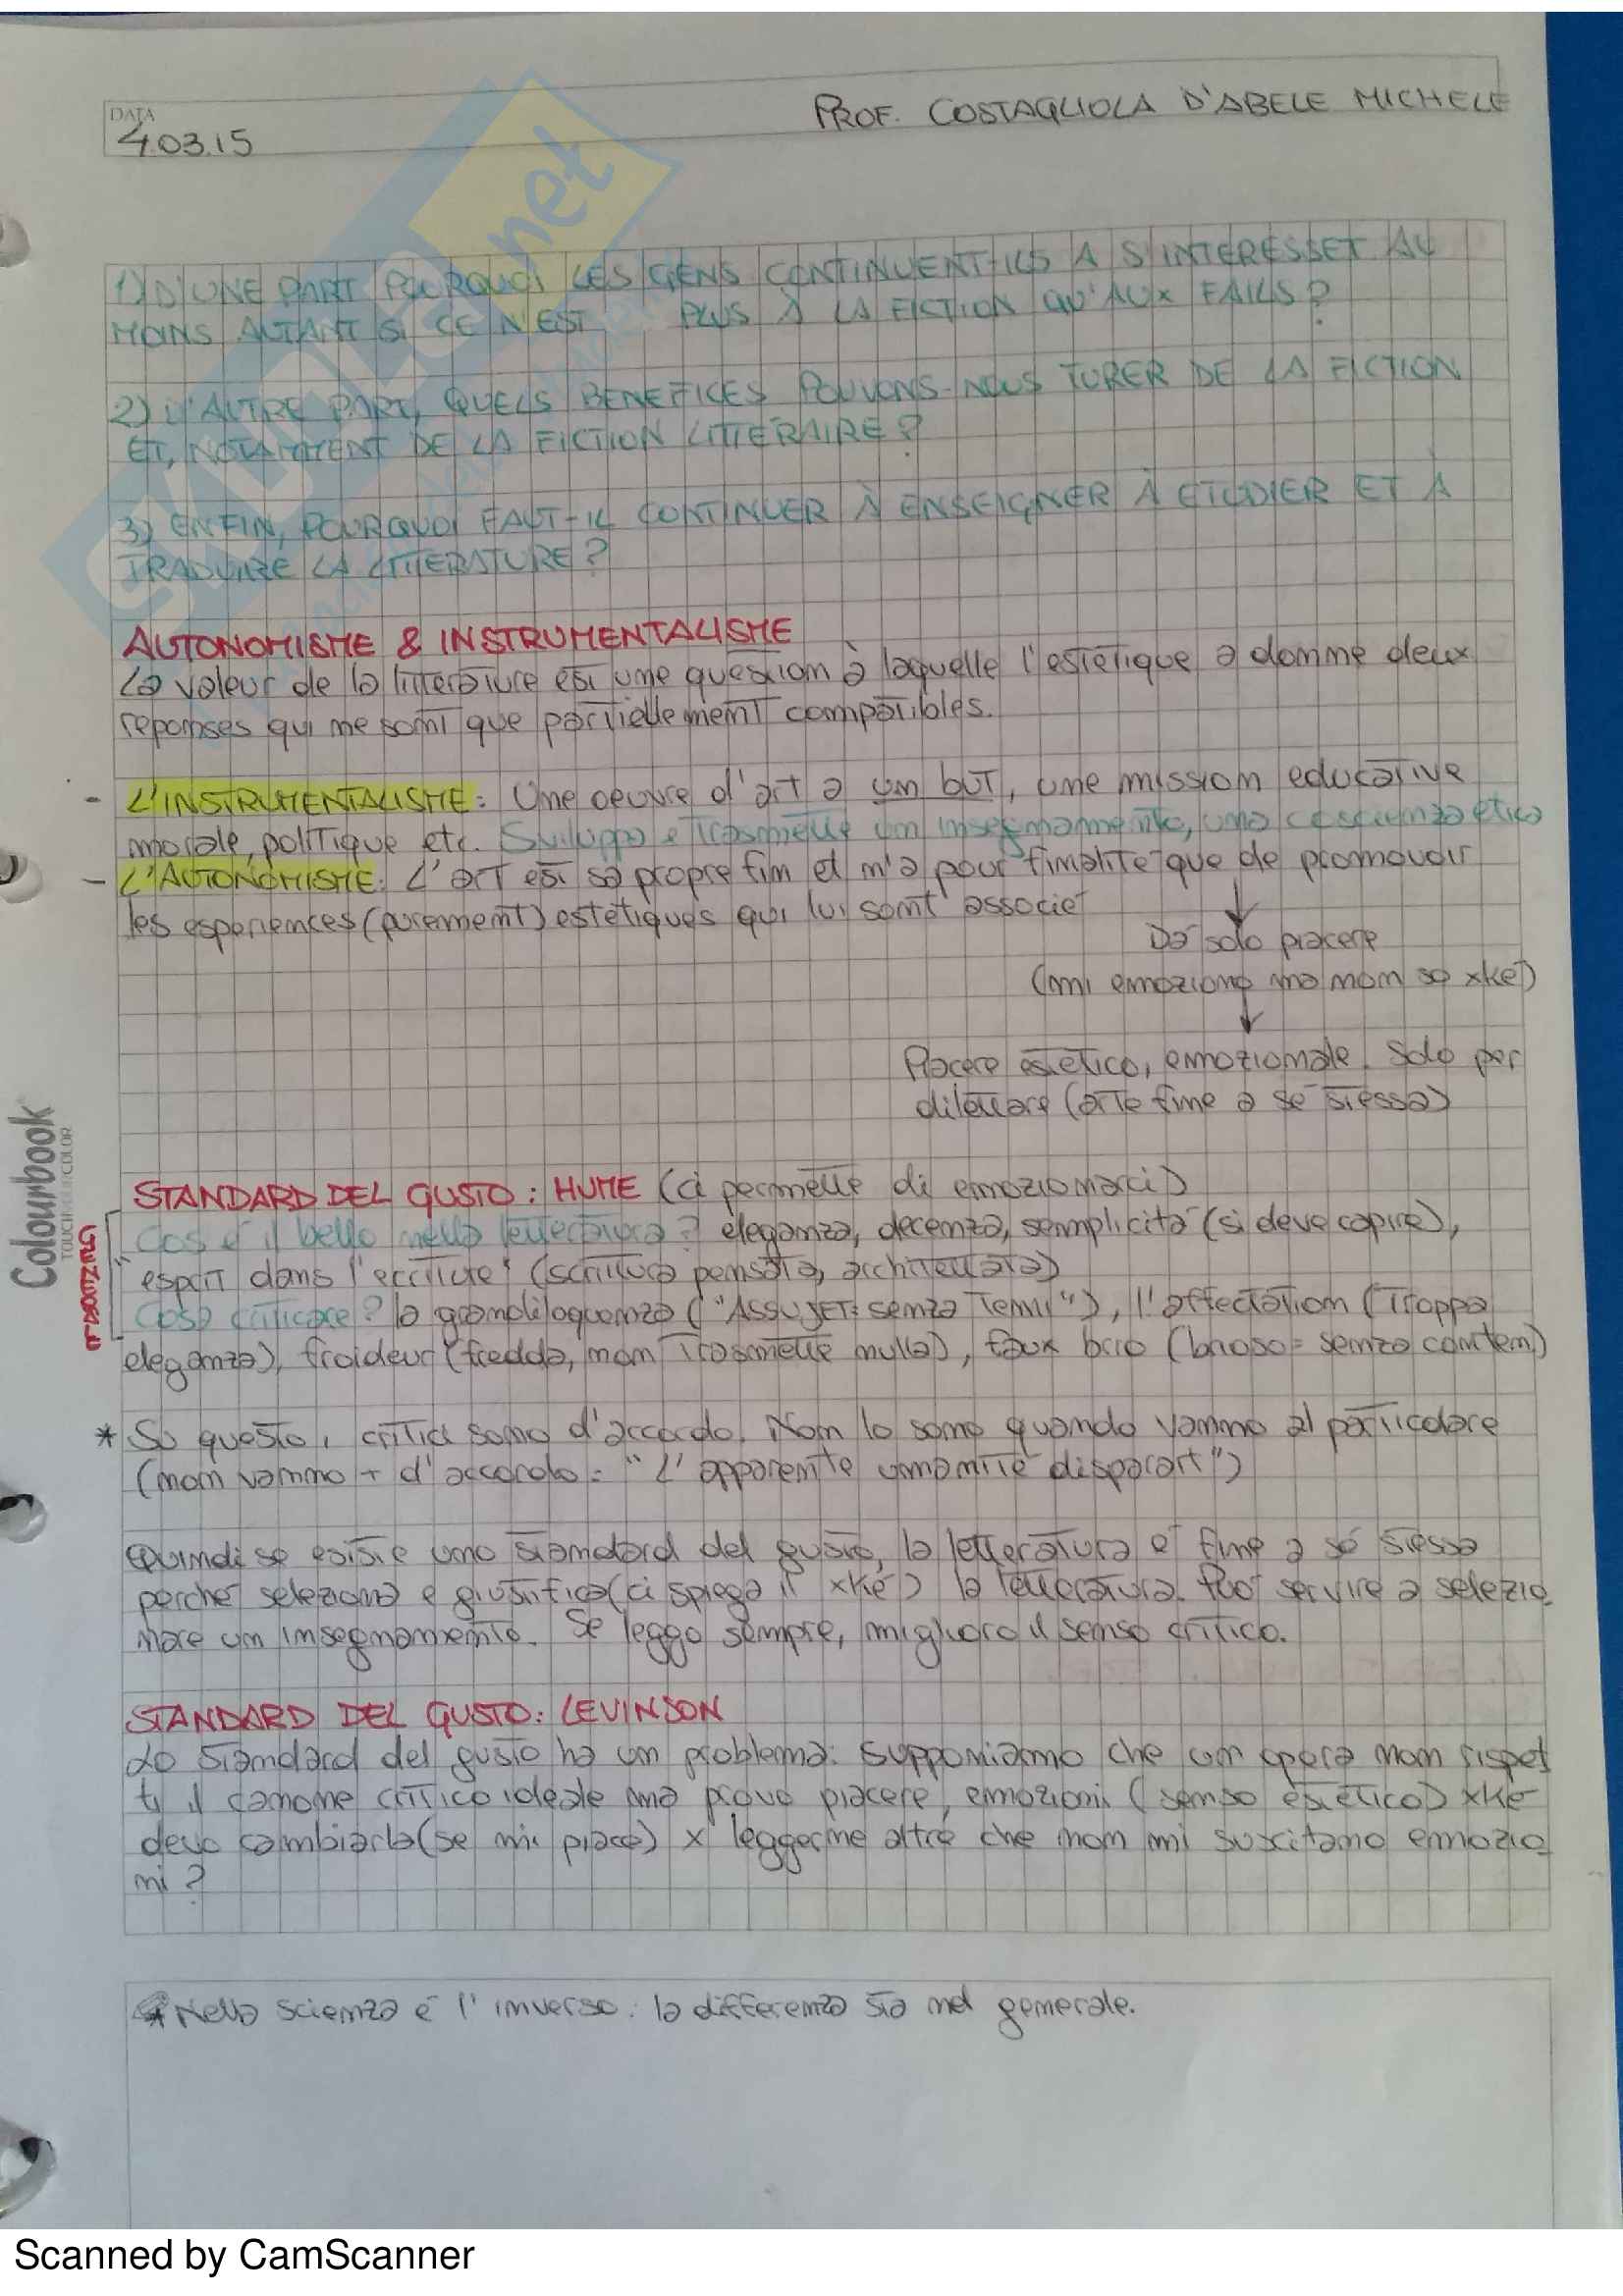 DATA
4.03.15
PROF. COSTAGLIOLA D'ABELE MICHELE
1) D'UNE PART POURQUOI LES GENS CONTINUENT-ILS A S'INTERESSET AU
MOINS AUTANT SI CE N'EST PLUS À LA FICTION QU'AUX FAITS?
2) D'AUTRE PART, QUELS BENEFICES POUVONS-NOUS TURER DE LA FICTION
ET, NOTAMMENT DE LA FICTION LITTERAIRE?
3) ENFIN, POURQUOI FAUT-IL CONTINUER À ENSEIGNER À ETUDIER ET À
TRADUIRE LA LITTERATURE?
AUTONOMISME & INSTRUMENTALISME
La valeur de la litterature est une question à laquelle l'estetique a donné deux
reponses qui ne sont que partiellement compatibles.
- L'INSTRUMENTALISME: Une oeuvre d'art a un but, une mission educative
morale, politique etc. Sviluppa e trasmette un insegnamento, una coscienza etica
- L'AUTONOMISME: L'art est sa propre fin et n'a pour finalité que de promouvoir
les esperiences (purement) estetiques qui lui sont associé
Dà solo piacere
(mi emoziono ma non so xkè)
Piacere estetico, emozionale. Solo per
dilettare (arte fine a se stessa)
Colourbook
STANDARD DEL GUSTO: HUME (ci permette di emozionarci)
Cos'è il bello nella letteratura? eleganza, decenza, semplicità (si deve capire),
esprit dans l'ecriture (scrittura pensata, architettata)
Cosa criticare? la grandiloquenza ("ASSUJET: senza temi"), l'affectation (Troppa
eleganza), froideur (fredda, non trasmette nulla), faux brio (brioso = senza conten)
* Su questo i critici sono d'accordo. Non lo sono quando vanno al particolare
(non vanno + d'accordo = "L'apparente unanmité disparart")
Quindi se esiste uno standard del gusto, la letteratura è fine a sé stessa
perché seleziona e giustifica (ci spiega il xkè) la letteratura. Può servire a selezio
nare un insegnamento. Se leggo sempre, miglioro il senso critico.
STANDARD DEL GUSTO: LEVINSON
Lo standard del gusto ha un problema: supponiamo che un opera non rispet
ti il canone critico ideale ma provo piacere, emozioni (senso estetico) xkè
devo cambiarla (se mi piace) x leggerne altre che non mi suscitano emozio
ni?
* Nella scienza è l'inverso: la differenza sta nel generale.
Scanned by CamScanner